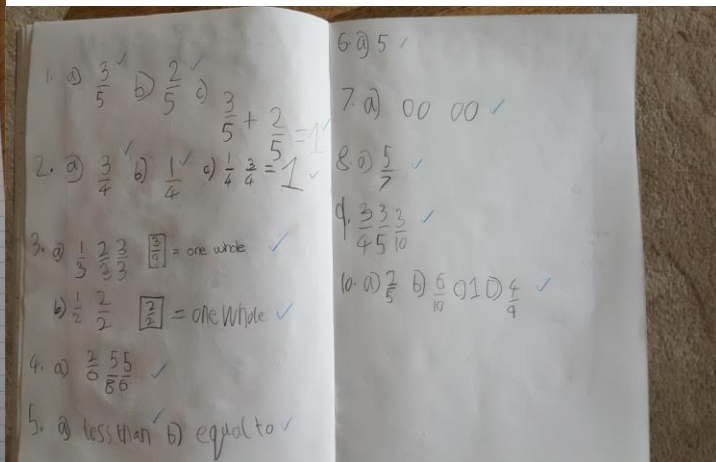 1. a) 3/5 b) 2/5 c) 3/5 + 2/5 = 1
2. a) 3/4 b) 1/4 c) 1/4 3/4 = 1
3. a) 1/3 2/3 3/3 3/3 = one whole
b) 1/2 2/2 2/2 = one whole
4. a) 2/6 5/8 5/6
5. a) less than b) equal to
6. a) 5
7. a) 00 00
8. a) 5/7
9. 3/4 3/5 3/10
10. a) 2/5 b) 6/10 c) 1 D) 4/9